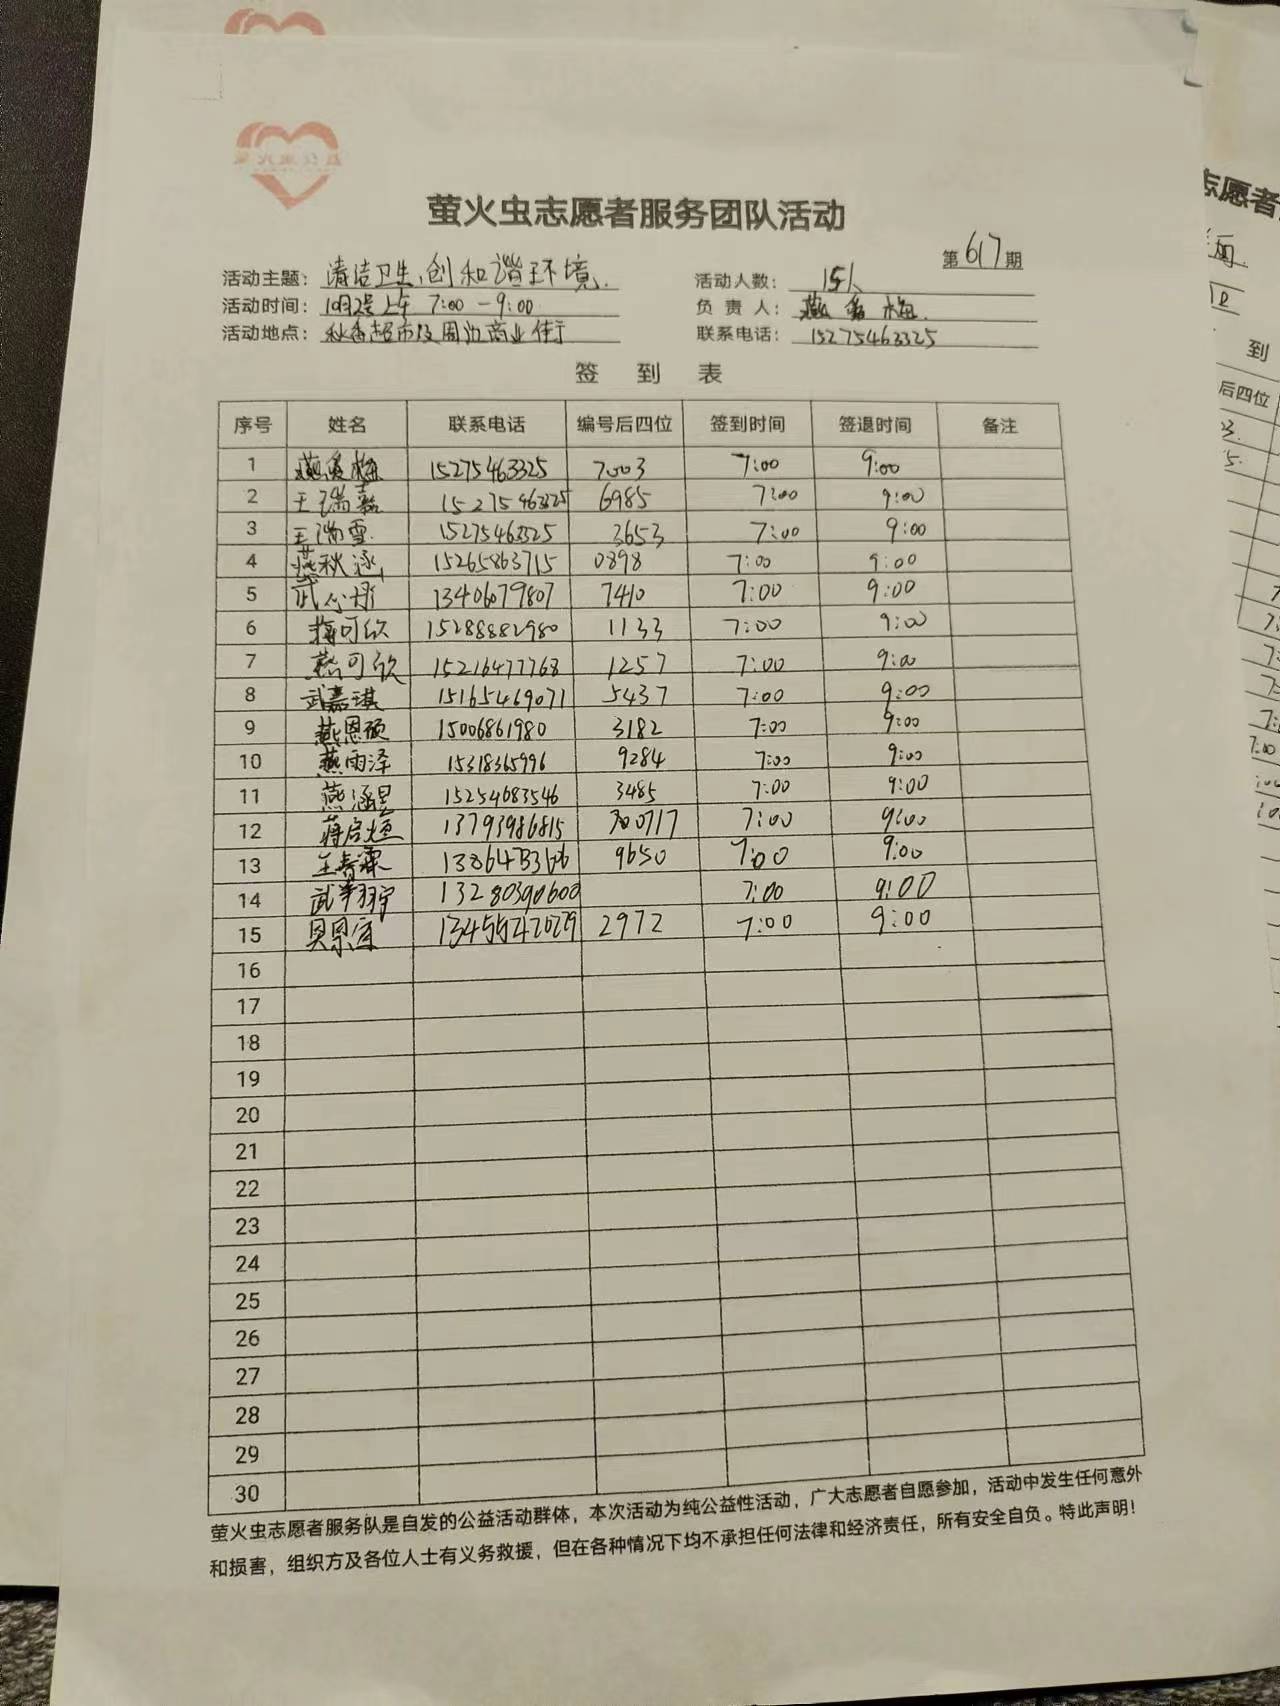 萤火虫志愿者服务团队活动
第617期
活动主题：清洁卫生,创和谐环境. 活动人数：15人
活动时间：10月2号上午 7:00 - 9:00 负 责 人：燕秀梅.
活动地点：秋香超市及周边商业街 联系电话：15275463325
签 到 表
序号 姓名 联系电话 编号后四位 签到时间 签退时间 备注
1 燕秀梅 15275463325 7003 7:00 9:00
2 王瑞嘉 15275463325 6985 7:00 9:00
3 王瑞雪. 15275463325 3653 7:00 9:00
4 燕秋涵 15265863715 0898 7:00 9:00
5 武心彤 13406079807 7410 7:00 9:00
6 可欣 15288882980 1133 7:00 9:00
7 燕可欣 15216477768 1257 7:00 9:00
8 武嘉琪 15165469071 5437 7:00 9:00
9 燕恩硕 15006861980 3182 7:00 9:00
10 燕雨泽 15318365996 9284 7:00 9:00
11 燕涵昱 15254683546 3485 7:00 9:00
12 蒋启恒 13793986815 7:00 9:00
13 9650 7:00 9:00
14 武 13280390600 7:00 9:00
15 2972 7:00 9:00
16
17
18
19
20
21
22
23
24
25
26
27
28
29
30
萤火虫志愿者服务队是自发的公益活动群体，本次活动为纯公益性活动，广大志愿者自愿参加，活动中发生任何意外
和损害，组织方及各位人士有义务救援，但在各种情况下均不承担任何法律和经济责任，所有安全自负。特此声明！
志愿者
到
后四位